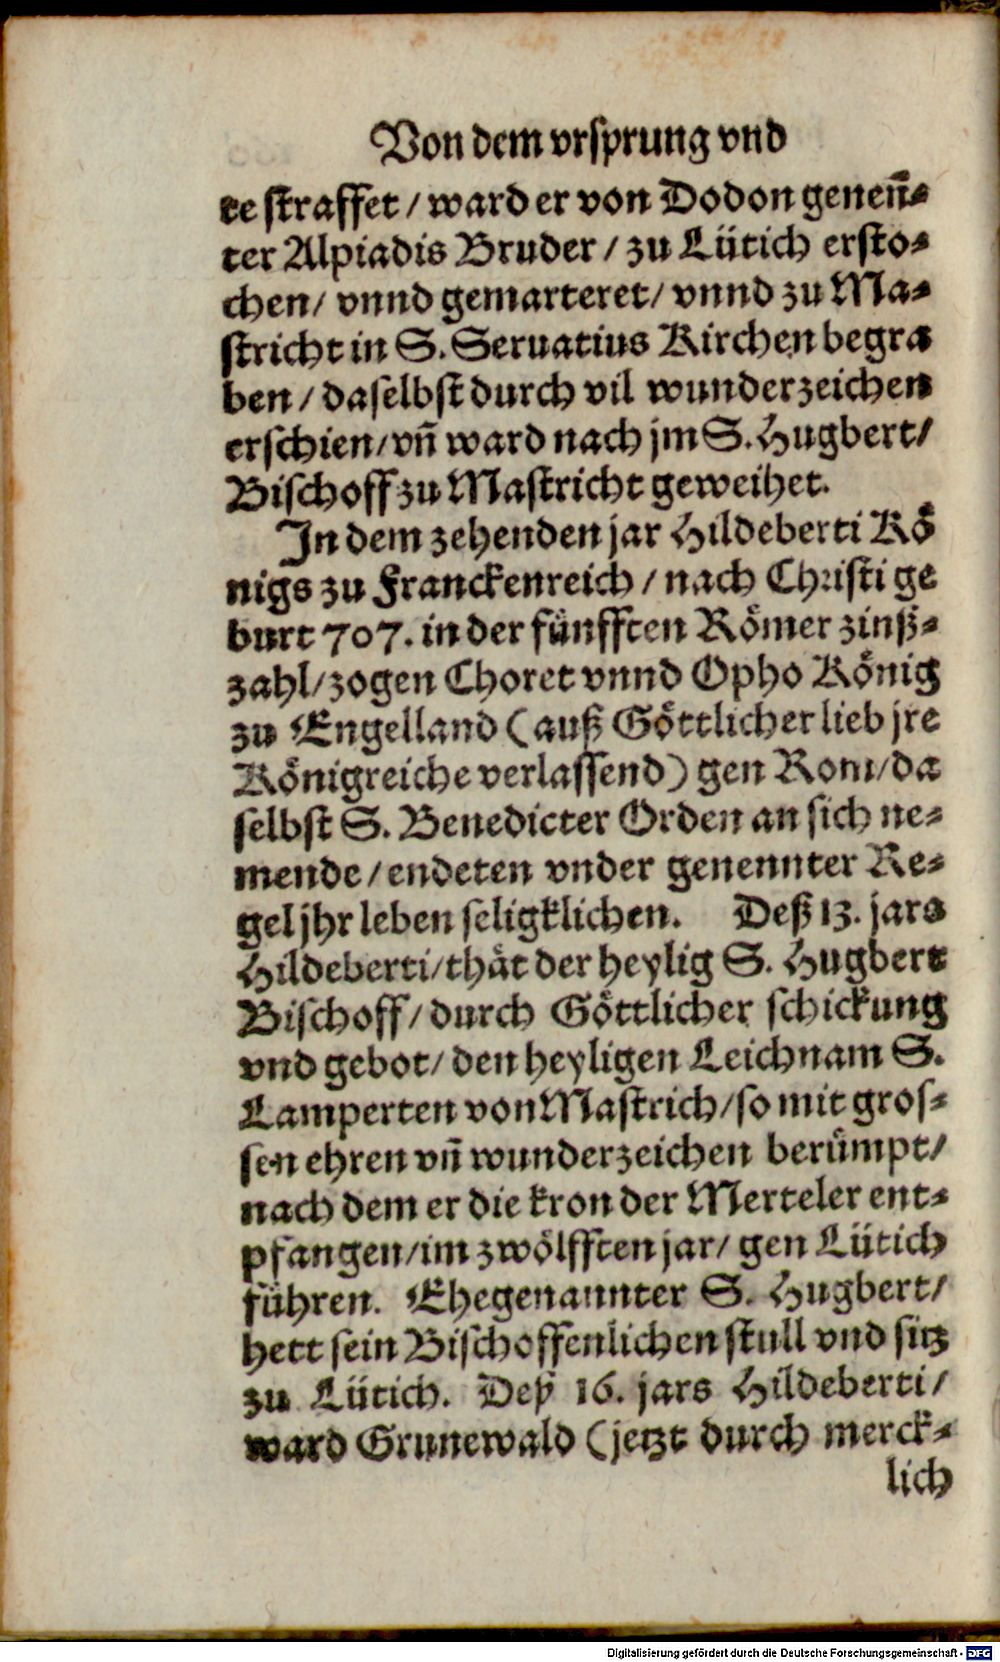 Von dem vrsprung vnd
te straffet / ward er von Dodon genen̄-
ter Alpiadis Bruder / zu Lütich ersto-
chen / vnnd gemarteret / vnnd zu Ma-
stricht in S. Seruatius Kirchen begra
ben / daselbst durch vil wunderzeichen
erschien / vn̄ ward nach jm S. Hugbert /
Bischoff zu Mastricht geweihet.
In dem zehenden jar Hildeberti Kö
nigs zu Franckenreich / nach Christi ge
burt 707. in der fünfften Römer zinß-
zahl / zogen Choret vnnd Opho König
zu Engelland (auß Göttlicher lieb jre
Königreiche verlassend) gen Rom / da
selbst S. Benedicter Orden an sich ne-
mende / endeten vnder genennter Re-
gel jhr leben seligklichen. Deß 13. jars
Hildeberti / thät der heylig S. Hugbert
Bischoff / durch Göttlicher schickung
vnd gebot / den heyligen Leichnam S.
Lamperten von Mastrich / so mit gros-
sen ehren vn̄ wunderzeichen berümpt /
nach dem er die kron der Merteler ent-
pfangen / im zwölfften jar / gen Lütich
führen. Ehegenannter S. Hugbert /
hett sein Bischoffenlichen stull vnd sitz
zu Lütich. Deß 16. jars Hildeberti /
ward Grunewald (jetzt durch merck-
lich
Digitalisierung gefördert durch die Deutsche Forschungsgemeinschaft - DFG